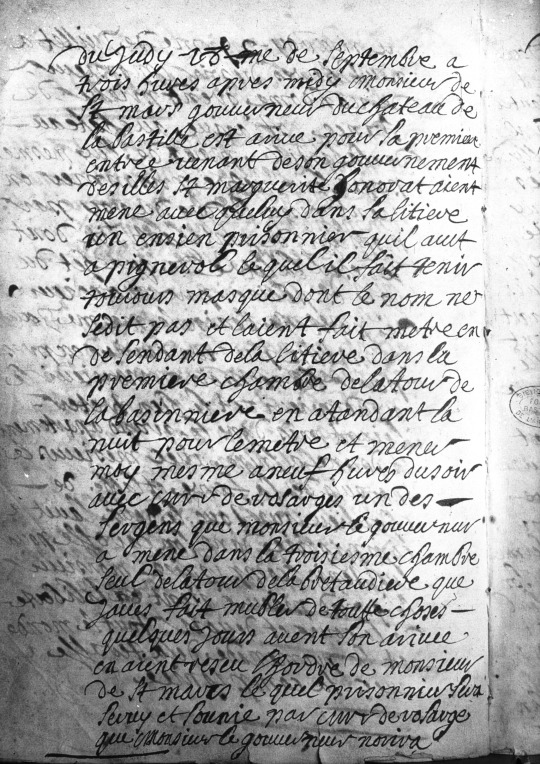 du judy 18me de septembre a
trois hures apres midy monsieur de
st mars gouverneur du chateau de
la bastille est arive pour sa premier
entree venant de son gouvernement
desilles st marguerite honorat aient
mene avec queluy dans sa litiere
un ensien prisonnier quil avet
a pignerol lequel il fait tenir
touiours masque dont le nom ne
sedit pas et laient fait metre en
de sendant de la litiere dans la
premiere chambre de la tour de
la basinniere en atandant la
nuit pour le metre et mener
moy mesme a neuf hures du soir
avec mr de rosarges un des
sergens que monsieur le gouvernur
a mene dans la troisiesme chambre
seul de la tour de la bretaudiere que
javes fait mubler de toutte choses
quelques jours avent son arivee
en aient reseu lhordre de monsieur
de st mars le quel prisonnier sera
servy et sounie par mr de rosarge
que monsieur le gouverneur norira